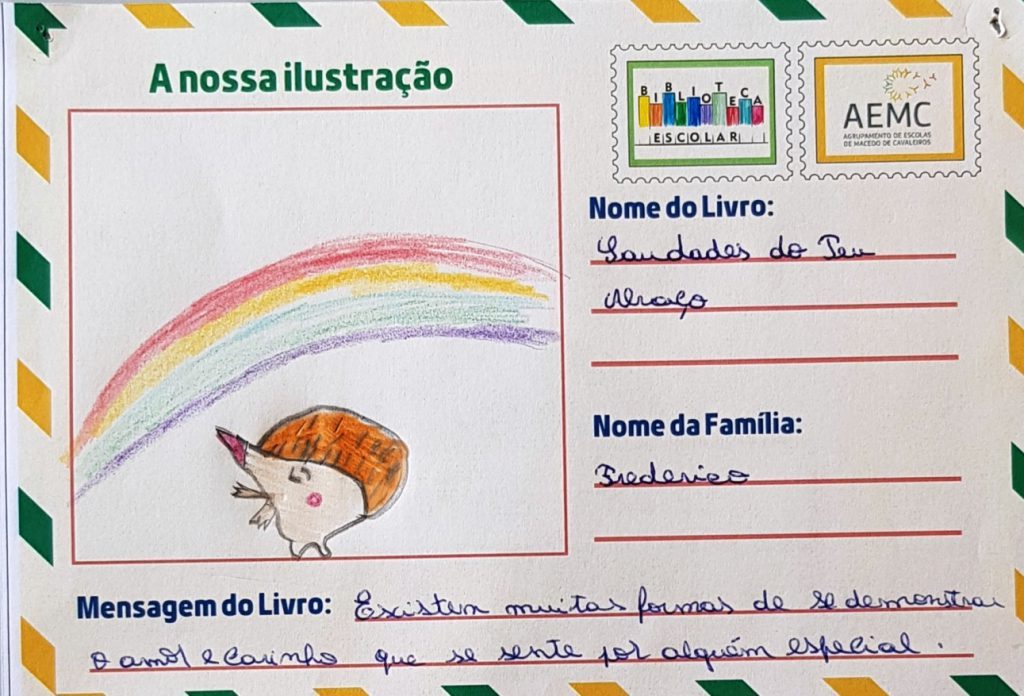 A nossa ilustração
BIBLIOTECA
ESCOLAR
AEMC
AGRUPAMENTO DE ESCOLAS
DE MACEDO DE CAVALEIROS
Nome do Livro:
Saudades do Teu
Abraço
Nome da Família:
Frederico
Mensagem do Livro: Existem muitas formas de se demonstrar
o amor e carinho que se sente por alguém especial.